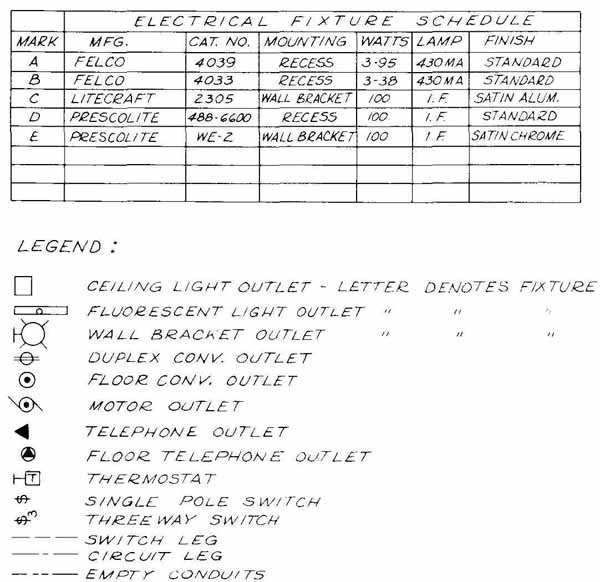 ELECTRICAL FIXTURE SCHEDULE
MARK MFG. CAT. NO. MOUNTING WATTS LAMP FINISH
A FELCO 4039 RECESS 3-95 430MA STANDARD
B FELCO 4033 RECESS 3-38 430MA STANDARD
C LITECRAFT 2305 WALL BRACKET 100 I.F. SATIN ALUM.
D PRESCOLITE 488-6600 RECESS 100 I.F. STANDARD
E PRESCOLITE WE-2 WALL BRACKET 100 I.F. SATIN CHROME
LEGEND:
CEILING LIGHT OUTLET - LETTER DENOTES FIXTURE
FLUORESCENT LIGHT OUTLET " " "
WALL BRACKET OUTLET " " "
DUPLEX CONV. OUTLET
FLOOR CONV. OUTLET
MOTOR OUTLET
TELEPHONE OUTLET
FLOOR TELEPHONE OUTLET
T THERMOSTAT
$ SINGLE POLE SWITCH
$3 THREE WAY SWITCH
SWITCH LEG
CIRCUIT LEG
EMPTY CONDUITS